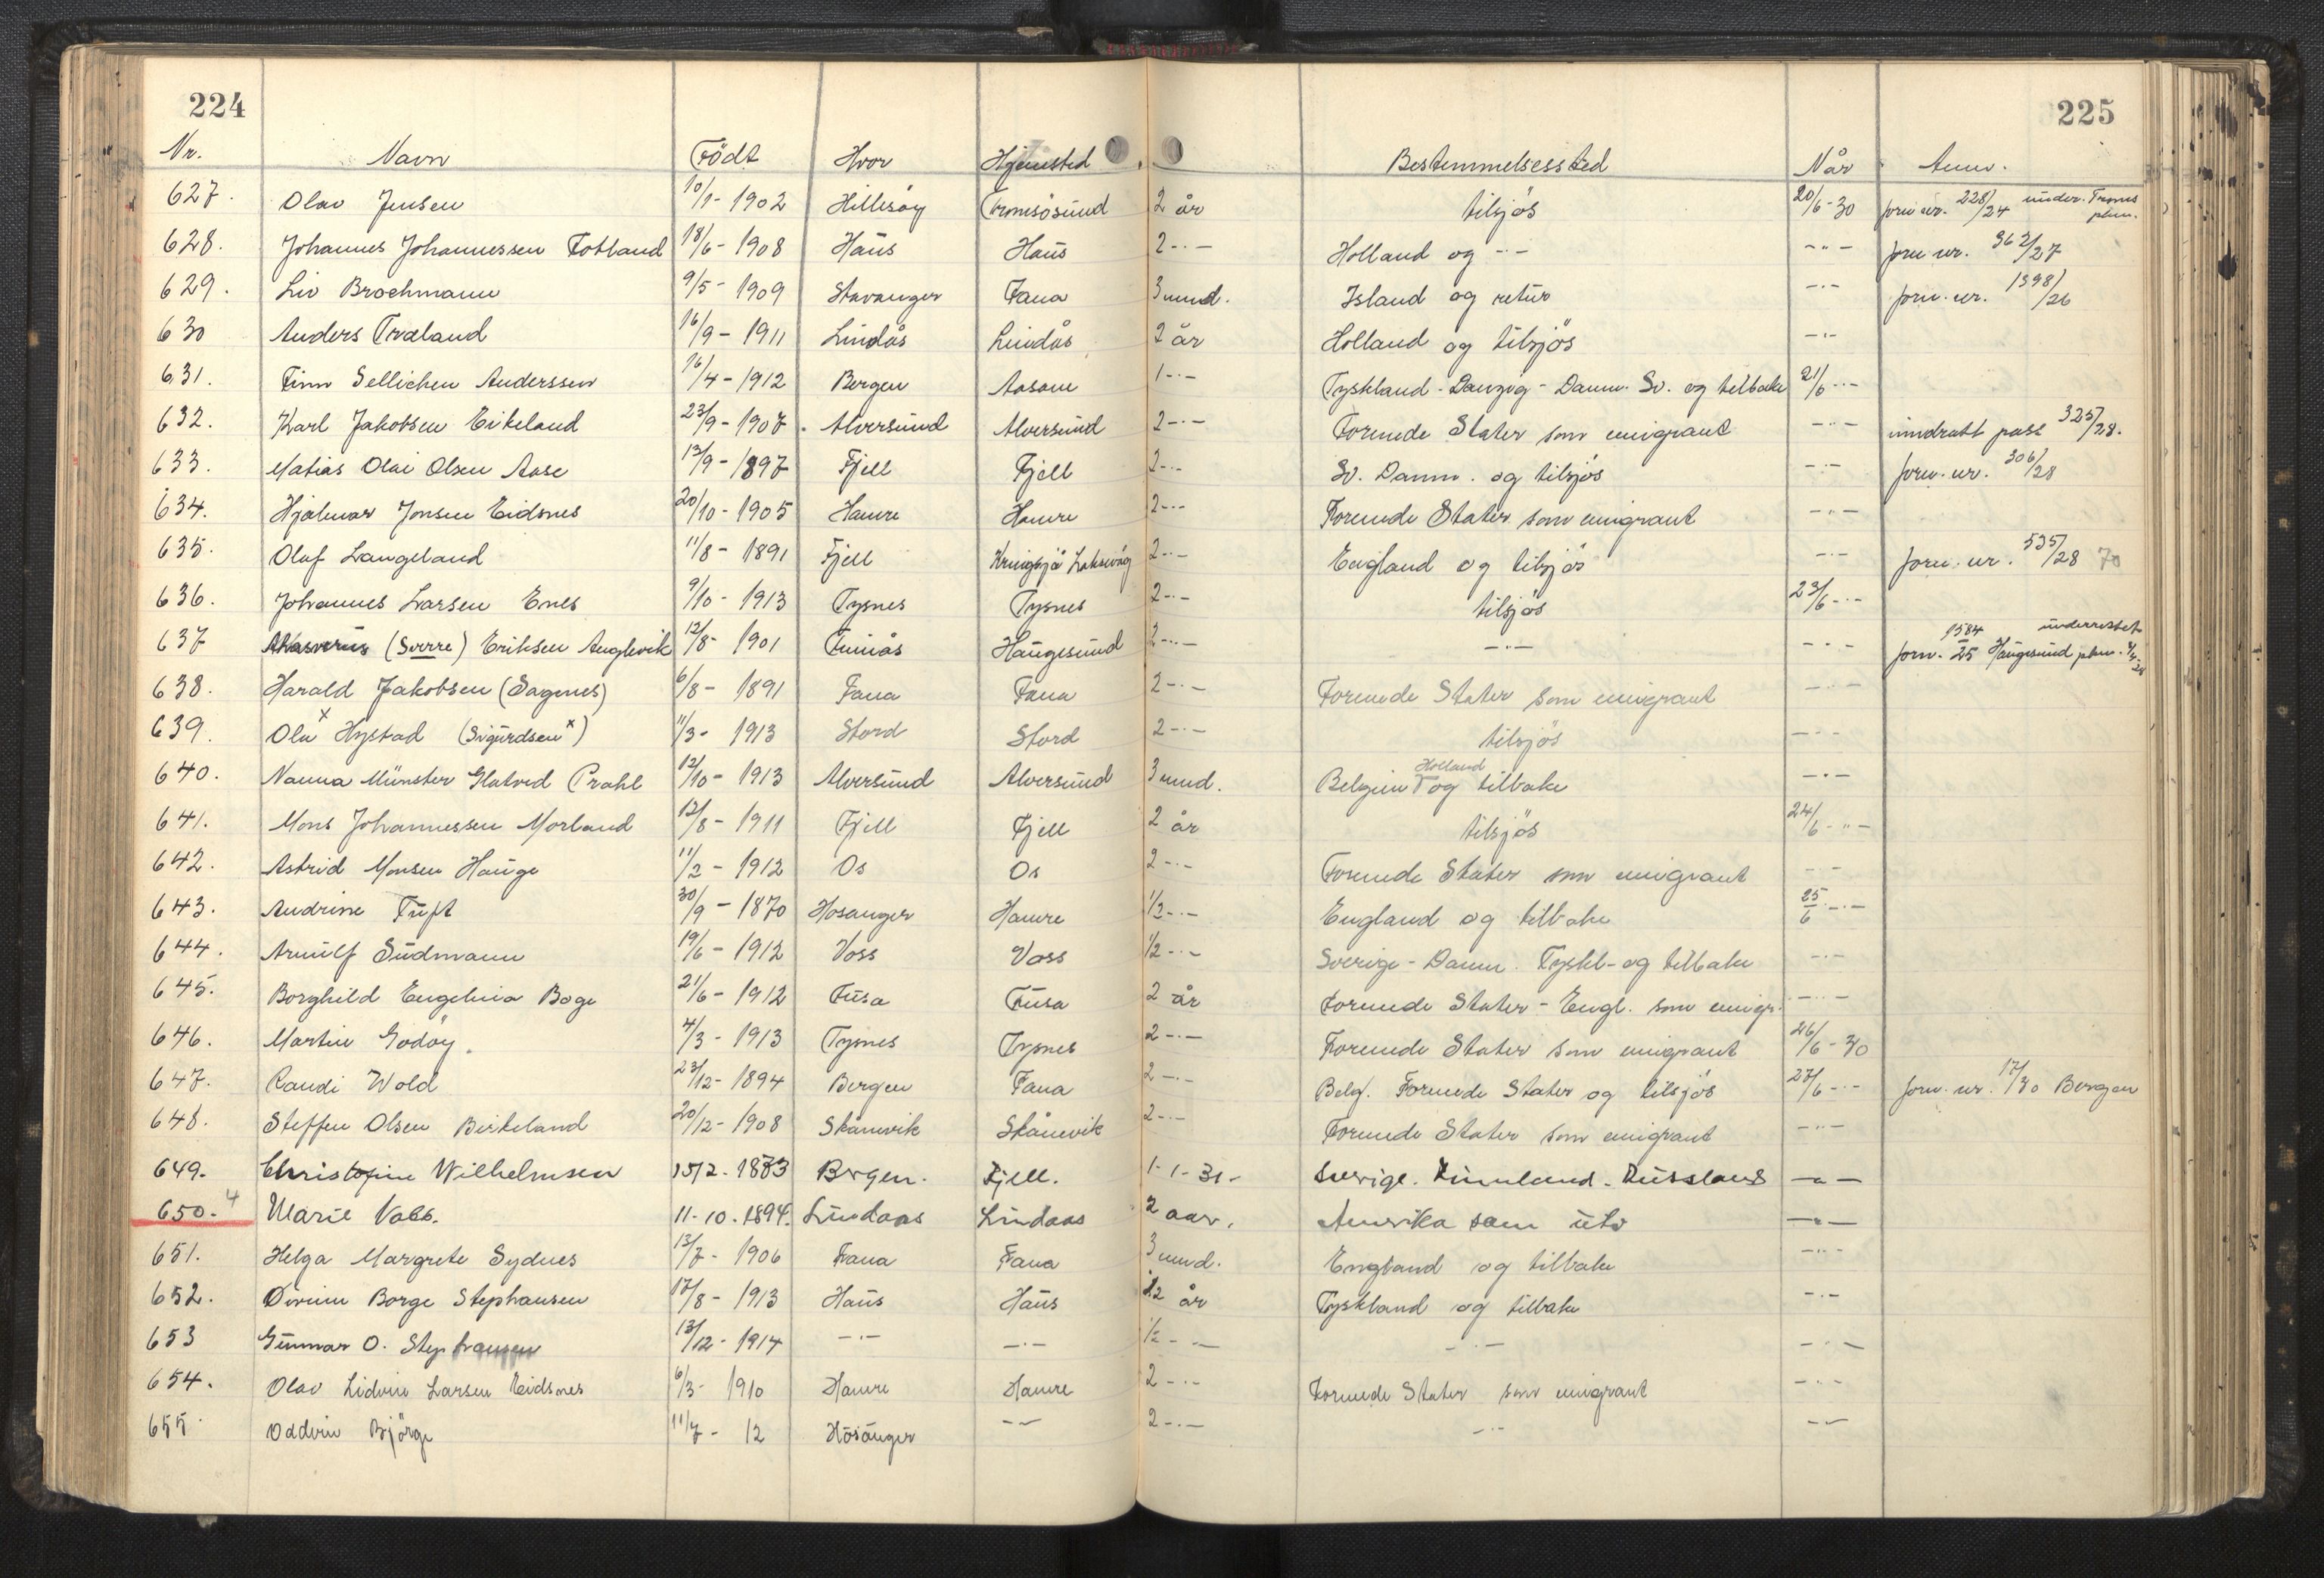 224
225
Nr. Navn Født Hvor Hjemsted Bestemmelsessted Når Anm.
627. Olav Jensen 10/1-1902 Hillesøy Tromsösund 2 år tilsjös 20/6-30 forn. nr. 228/24 under. Troms pkm.
628. Johannes Johannessen Fotland 18/6-1908 Haus Haus 2 -"- Holland og -"- -"- forn. nr. 362/27
629. Liv Brochmann 9/5-1909 Stavanger Fana 3 mnd. Island og retur -"- forn. nr. 1398/26
630 Anders Træland 16/9-1911 Lindås Lindås 2 år Holland og tilsjös -"-
631. Finn Sellichen Anderssen 16/4-1912 Bergen Aasane 1 -"- Tyskland - Danzig - Danm. Sv. og tilbake 21/6 -"-
632. Karl Jakobsen Eikeland 23/9-1907. Alversund Alversund 2 -"- Forenede Stater som emigrant -"- inndratt pass 325/28.
633. Matias Olai Olsen Aase 13/9-1897 Fjell Fjell 2 -"- Sv. Danm. og tilsjös -"- forn. nr. 306/28
634. Hjalmar Jonsen Eidsnes 20/10-1905 Hamre Hamre 2 -"- Forenede Stater som emigrant -"-
635. Olaf Langeland 11/8-1891 Fjell Kringsjå Laksevåg 2 -"- England og tilsjös -"- forn. nr. 535/28 70
636. Johannes Larsen Enes 9/10-1913 Tysnes Tysnes 2 -"- tilsjös 23/6 -"-
637 Ahasverus (Sverre) Eriksen Anglevik 12/8-1901 Finnås Haugesund 2 -"- -"- -"- forn. 1584/25 underrettet Haugesund pkm.
638. Harald Jakobsen (Sagenes) 6/8-1891 Fana Fana 2 -"- Forenede Stater som emigrant -"-
639. Ola x Hystad (Sigurdsen x) 11/3-1913 Stord Stord 2 -"- tilsjös -"-
640. Nanna Münster Glatved Prahl 12/10-1913 Alversund Alversund 3 mnd. Belgien Holland og tilbake -"-
641. Mons Johannessen Morland 12/8-1911 Fjell Fjell 2 år tilsjös 24/6 -"-
642. Astrid Monsen Hauge 11/2-1912 Os Os 2 -"- Forenede Stater som emigrant -"-
643. Andrine Tuft 30/9-1870 Hosanger Hamre 1/2 -"- England og tilbake 25/6 -"-
644. Arnulf Sudmann 19/6-1912 Voss Voss 1/2 -"- Sverige - Danm. Tyskl- og tilbake -"-
645. Borghild Engelina Boge 21/6-1912 Fusa Fusa 2 år Forenede Stater - Engl. som emigr. -"-
646. Martin Godöy. 4/3-1913 Tysnes Tysnes 2 -"- Forenede Stater som emigrant 26/6-30
647. Randi Wold 23/12-1894 Bergen Fana 2 -"- Belg. Forenede Stater og tilsjös 27/6 -"- forn. nr. 17/30 Bergen
648. Steffen Olsen Birkeland 20/12-1908 Skånevik Skånevik 2 -"- Forenede Stater som emigrant -"-
649. Christofine Wilhelmsen 15/2-1883 Brgen. Fjell. 1-1-31- Sverige. Finnland - Russland -"-
650.- 4 Marie 11-10.1894. Lindaas Lindaas 2 aar. Amerika som utv -"-
651. Helga Margrete Sydnes 13/7-1906 Fana Fana 3 mnd. England og tilbake -"-
652. Øivinn Borge Stephansen 17/8-1913 Haus Haus 1/2 år Tyskland og tilbake -"-
653 Gunnar O. Stephansen 13/12-1914 -"- -"- 1/2 -"- -"- -"-
654. Olav Lidvin Larsen Eidsnes 6/3-1910 Hamre Hamre 2 -"- Forenede Stater som emigrant -"-
655. Oddvin Bjørge 11/7-12 Hosanger -"- 2 -"- -"- -"-